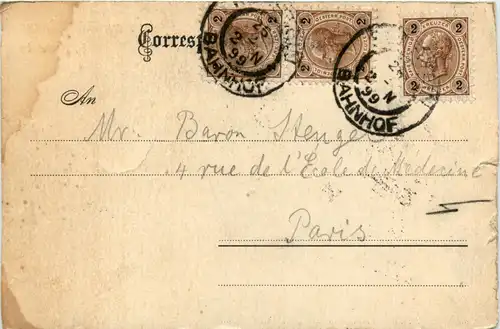 Corres
2 2 2 2
KREUZER
2 2 2 2
BAHNHOF
99
BAHNHOF
99
An
Mr. Baron Stenge
4 rue de l'Ecole de Medecine
Paris